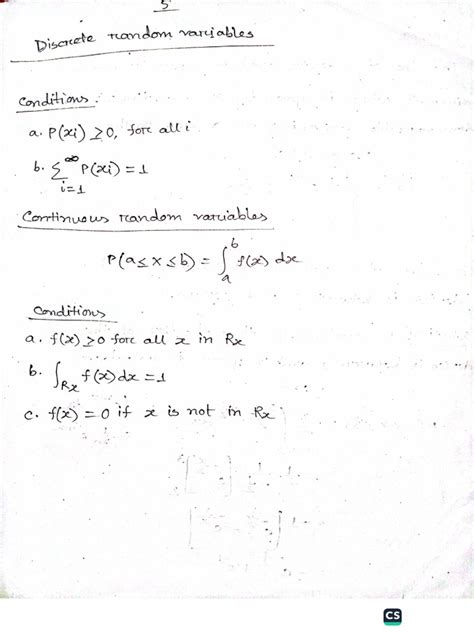 5
Discrete random variables
Conditions:
a. P(xi) ≥0, for all i
b. ∑_{i=1}^{∞} P(xi) = 1
Continuous random variables
P(a≤x≤b) = ∫_a^b f(x) dx
Conditions
a. f(x) ≥0 for all x in Rx
b. ∫_{Rx} f(x)dx =1
c. f(x) = 0 if x is not in Rx
CS